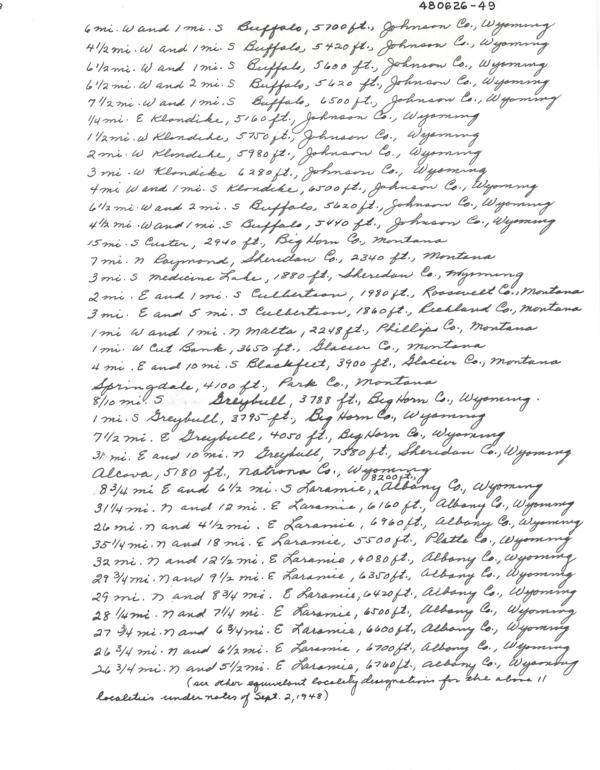 480626-49
6 mi. W and 1 mi. S Buffalo, 5700 ft., Johnson Co., Wyoming
4 1/2 mi. W and 1 mi. S Buffalo, 5420 ft., Johnson Co., Wyoming
6 1/2 mi. W and 1 mi. S Buffalo, 5600 ft., Johnson Co., Wyoming
6 1/2 mi. W and 2 mi. S Buffalo, 5620 ft., Johnson Co., Wyoming
7 1/2 mi. W and 1 mi. S Buffalo, 6500 ft., Johnson Co., Wyoming
1/4 mi. E Klondike, 5160 ft., Johnson Co., Wyoming
1 1/2 mi. W Klondike, 5750 ft., Johnson Co., Wyoming
2 mi. W Klondike, 5980 ft., Johnson Co., Wyoming
3 mi. W Klondike 6280 ft., Johnson Co., Wyoming
4 mi W and 1 mi. S Klondike, 6500 ft., Johnson Co., Wyoming
6 1/2 mi. W and 2 mi. S Buffalo, 5620 ft., Johnson Co., Wyoming
4 1/2 mi. W and 1 mi. S Buffalo, 5440 ft., Johnson Co., Wyoming
15 mi. S Custer, 2940 ft., Big Horn Co., Montana
7 mi. N Raymond, Sheridan Co., 2340 ft., Montana
3 mi. S Medicine Lake, 1880 ft., Sheridan Co., Wyoming
2 mi. E and 1 mi. S Culbertson, 1980 ft., Roosevelt Co., Montana
3 mi. E and 5 mi. S Culbertson, 1860 ft., Richland Co., Montana
1 mi W and 1 mi. N Malta, 2248 ft., Phillips Co., Montana
1 mi. W Cut Bank, 3650 ft., Glacier Co., Montana
4 mi. E and 10 mi. S Blackfeet, 3900 ft., Glacier Co., Montana
Springdale, 4100 ft., Park Co., Montana
8/10 mi. S Greybull, 3788 ft., Big Horn Co., Wyoming.
1 mi. S Greybull, 3795 ft., Big Horn Co., Wyoming
7 1/2 mi. E Greybull, 4050 ft., Big Horn Co., Wyoming
31 mi. E and 10 mi. N Greybull, 7580 ft., Sheridan Co., Wyoming
Alcova, 5180 ft., Natrona Co., Wyoming
8 3/4 mi E and 6 1/2 mi. S Laramie, 8200 ft., Albany Co., Wyoming
31 1/4 mi. N and 12 mi. E Laramie, 6160 ft., Albany Co., Wyoming
26 mi. N and 4 1/2 mi. E Laramie, 6960 ft., Albany Co., Wyoming
35 1/4 mi. N and 18 mi. E Laramie, 5500 ft., Platte Co., Wyoming
32 mi. N and 12 1/2 mi. E Laramie, 6080 ft., Albany Co., Wyoming
29 3/4 mi. N and 9 1/2 mi. E Laramie, 6350 ft., Albany Co., Wyoming
29 mi. N and 8 3/4 mi. E Laramie, 6420 ft., Albany Co., Wyoming
28 1/4 mi. N and 7 1/4 mi. E Laramie, 6500 ft., Albany Co., Wyoming
27 3/4 mi. N and 6 3/4 mi. E Laramie, 6600 ft., Albany Co., Wyoming
26 3/4 mi. N and 6 1/2 mi. E Laramie, 6700 ft., Albany Co., Wyoming
26 3/4 mi. N and 5 1/2 mi. E Laramie, 6760 ft., Albany Co., Wyoming
(see other equivalent locality designations for the above 11
localities under notes of Sept. 2, 1948)